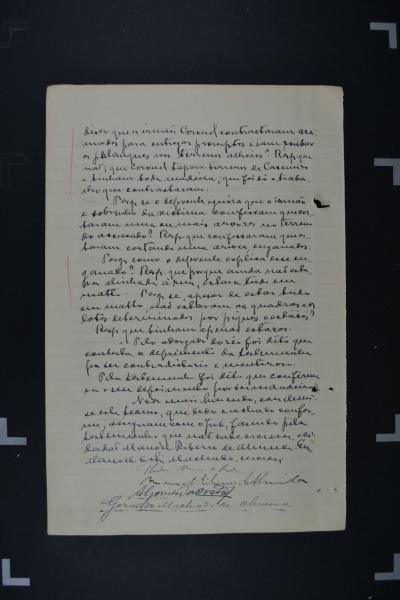 disse que os irmãos Coronel contractaram ara
mados para entregar promptos e iam roubar
os palanques em terrenos alheios? Resp. que
não; que Coronel tapava terrenos de Casemiro
e tinham toda madeira; que foi só o traba
lho que contractaram.
Perg. se o depoente ignora que o irmão
e sobrinho da victima confessam que cor
taram uma ou mais arvores no terreno
do accusado? Resp. que confessaram que es
tavam cortando uma arvore, enganados.
Perg. como o depoente explica esse en
ganado? Resp. que porque ainda não esta
va alinhada a
matto. Perg. se, apesar de estar tudo
em matto não estavam os quadros e os
lotes determinados por piques e estacas?
Resp. que tinham apenas estacas.
Pelo advogado do réo foi dito que
contesta o depoimento da testemunha
por ser contradictorio e mentiroso.
Pela testemunha foi dito que confirma
va o seu depoimento por ser verdadeiro.
Nada mais havendo, encerrou-
se este termo, que lido e achado confor
me, assignam com o Juiz, fazendo pela
testemunha que não sabe escrever, o ci
dadão Manoel Ribeiro de Almeida. Eu
Manoel Machado, escrevi.
Manoel Ribeiro de Almeida
Geraldo Machado de Oliveira